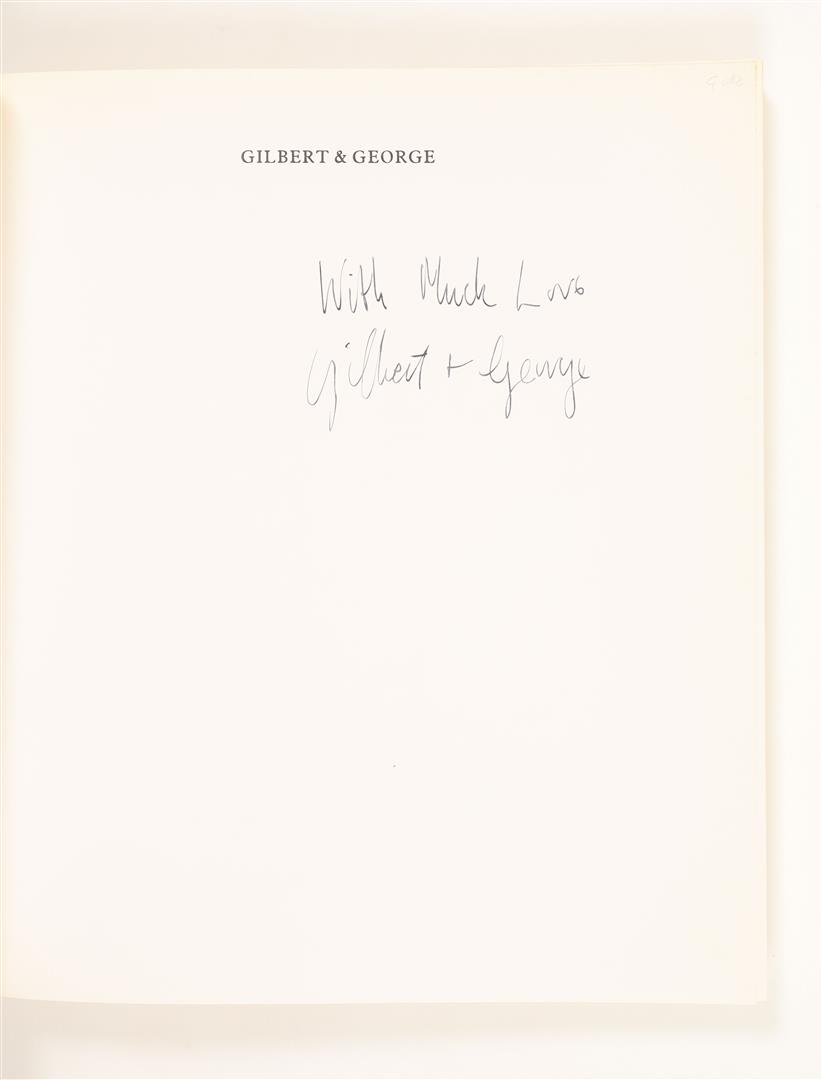 GILBERT & GEORGE
With Much Love
Gilbert + George